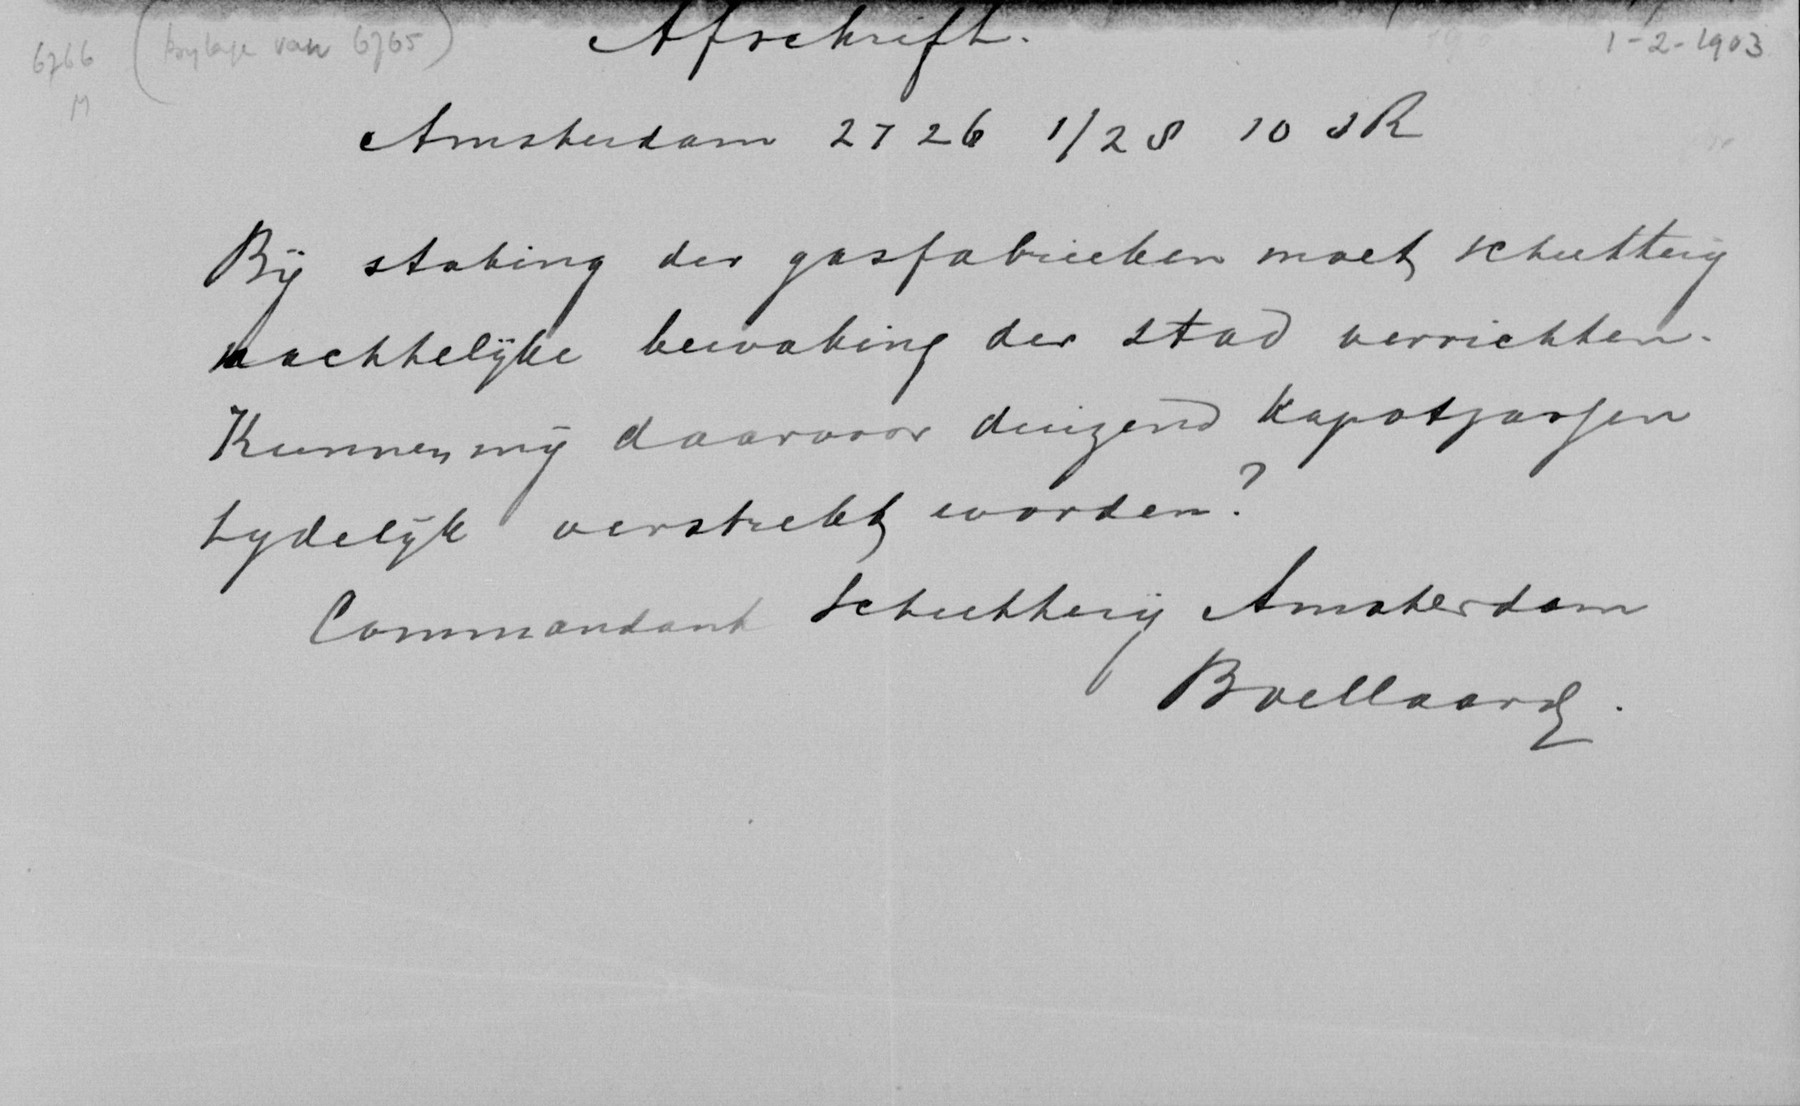 6766 (Bylage van 6765)
M
Afschrift.
1-2-1903
Amsterdam 27 26 1/2 8 10 SR
Bij staking der gasfabrieken moet schutterij
nachtelijke bewaking der stad verrichten.
Kunnen mij daarvoor duizend kapotjassen
tydelijk verstrekt worden?
Commandant Schutterij Amsterdam
Boellaard.